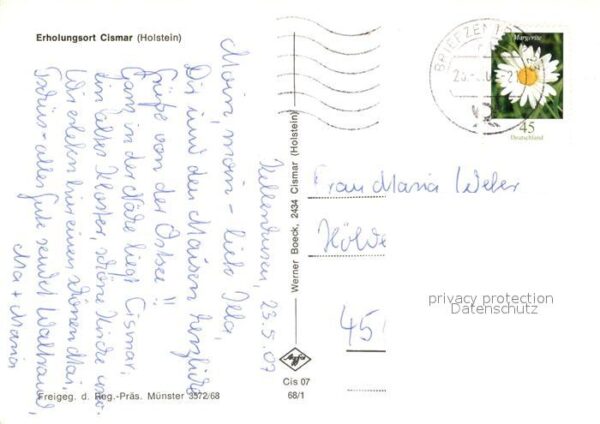 Erholungsort Cismar (Holstein)
Moin, moin - liebe Illa,
Dir und den Maisen herzliche
Grüße von der Ostsee!!
Ganz in der Nähe liegt Cismar,
ein altes Kloster, schöne Kirche usw.
Wir erleben hier einen schönen Mai.
Tschüss - alles Gute sendet Waltraud,
Ma + Maria
23.5.07
Freigeg. d. Reg.-Präs. Münster 3572/68
Werner Boeck, 2434 Cismar (Holstein)
Cis 07
68/1
BRIEFZENTRUM
Margerite
45
Deutschland
Frau Maria Weber
Hölde
45
privacy protection
Datenschutz